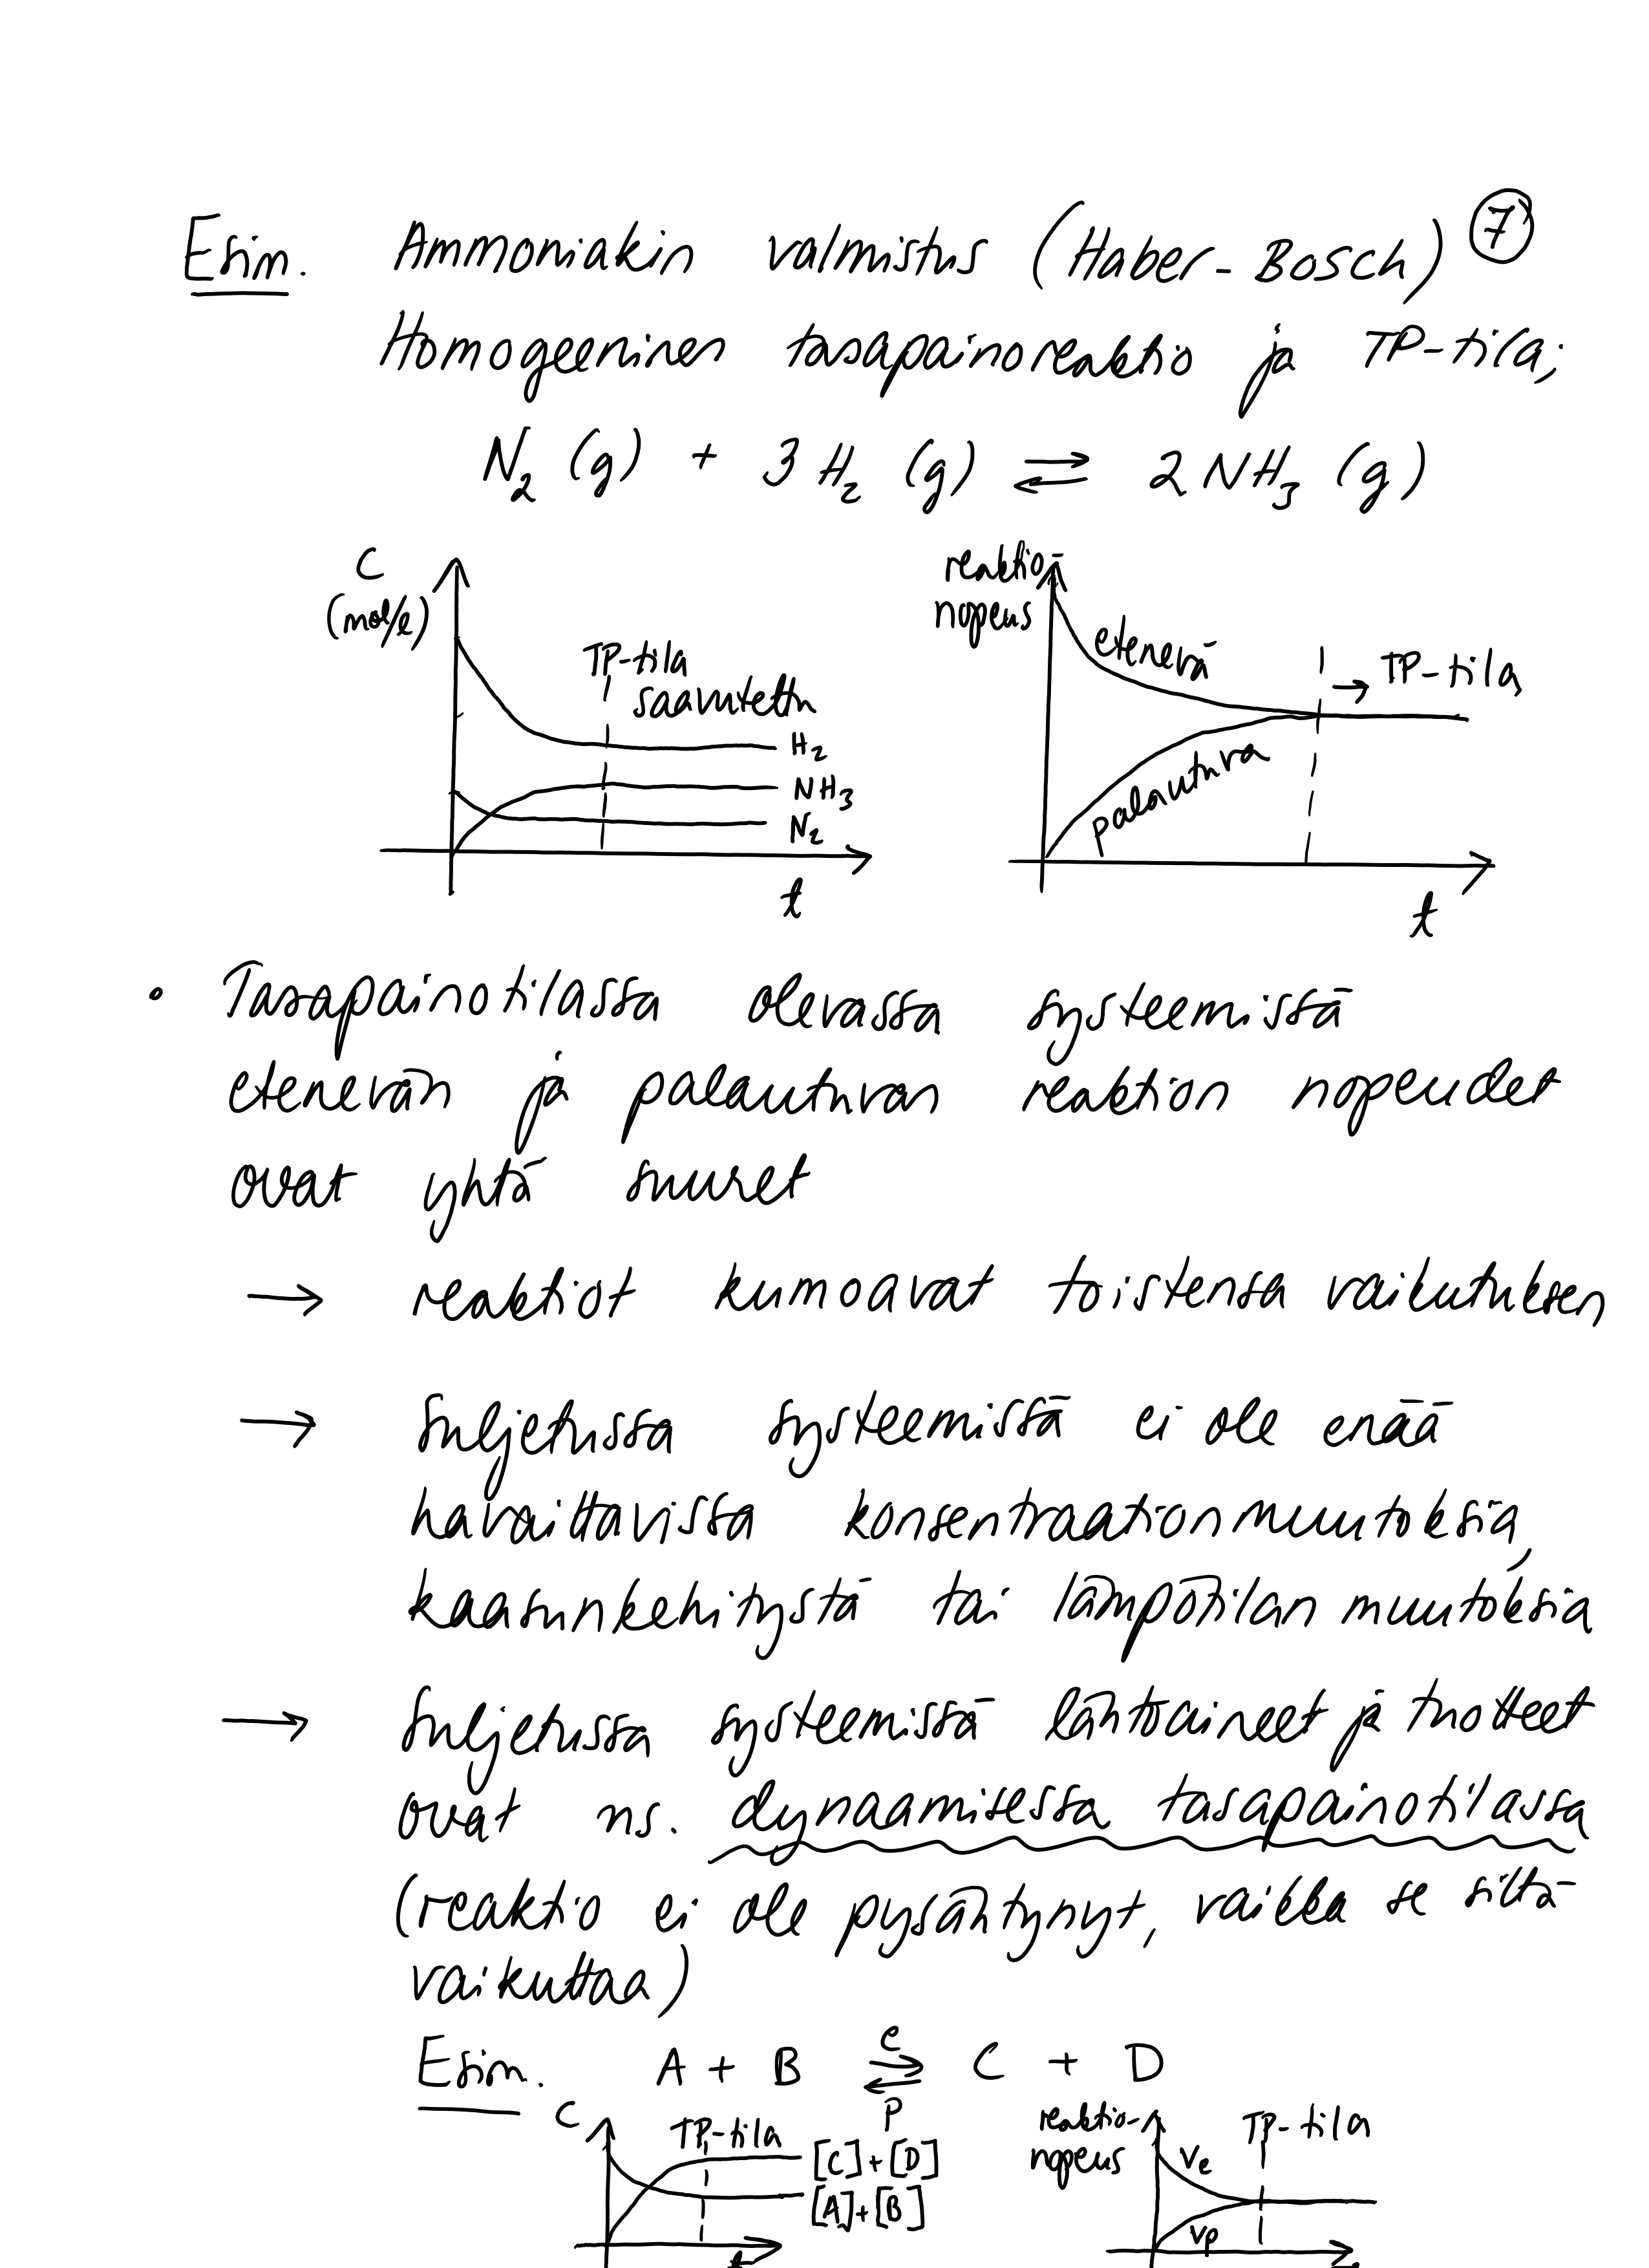 Esim. Ammoniakin valmistus (Haber-Bosch) 7
Homogeeninen tasapainoreaktio ja TP-tila;
N₂ (g) + 3 H₂ (g) ⇌ 2 NH₃ (g)
C
(mol/l)
TP-tila
saavutettu
H₂
NH₃
N₂
t
reaktio-
nopeus
etenevä
→ TP-tila
palautuva
t
• Tasapainotilassa olevassa systeemissä
etenevän ja palautuvan reaktion nopeudet
ovat yhtä suuret
→ reaktiot kumoavat toistensa vaikutuksen
→ Suljetussa systeemissä ei ole enää
havaittavissa konsentraationmuutoksia,
kaasunkehitystä tai lämpötilan muutoksia
→ Suljetussa systeemissä lähtöaineet ja tuotteet
ovat ns. dynaamisessa tasapainotilassa
(reaktio ei ole pysähtynyt, vaikka se siltä
vaikuttaa)
Esim. A + B ⇌ C + D
e
p
C
TP-tila
[C]+[D]
[A]+[B]
t
reaktio-
nopeus
TP-tila
ve
vp